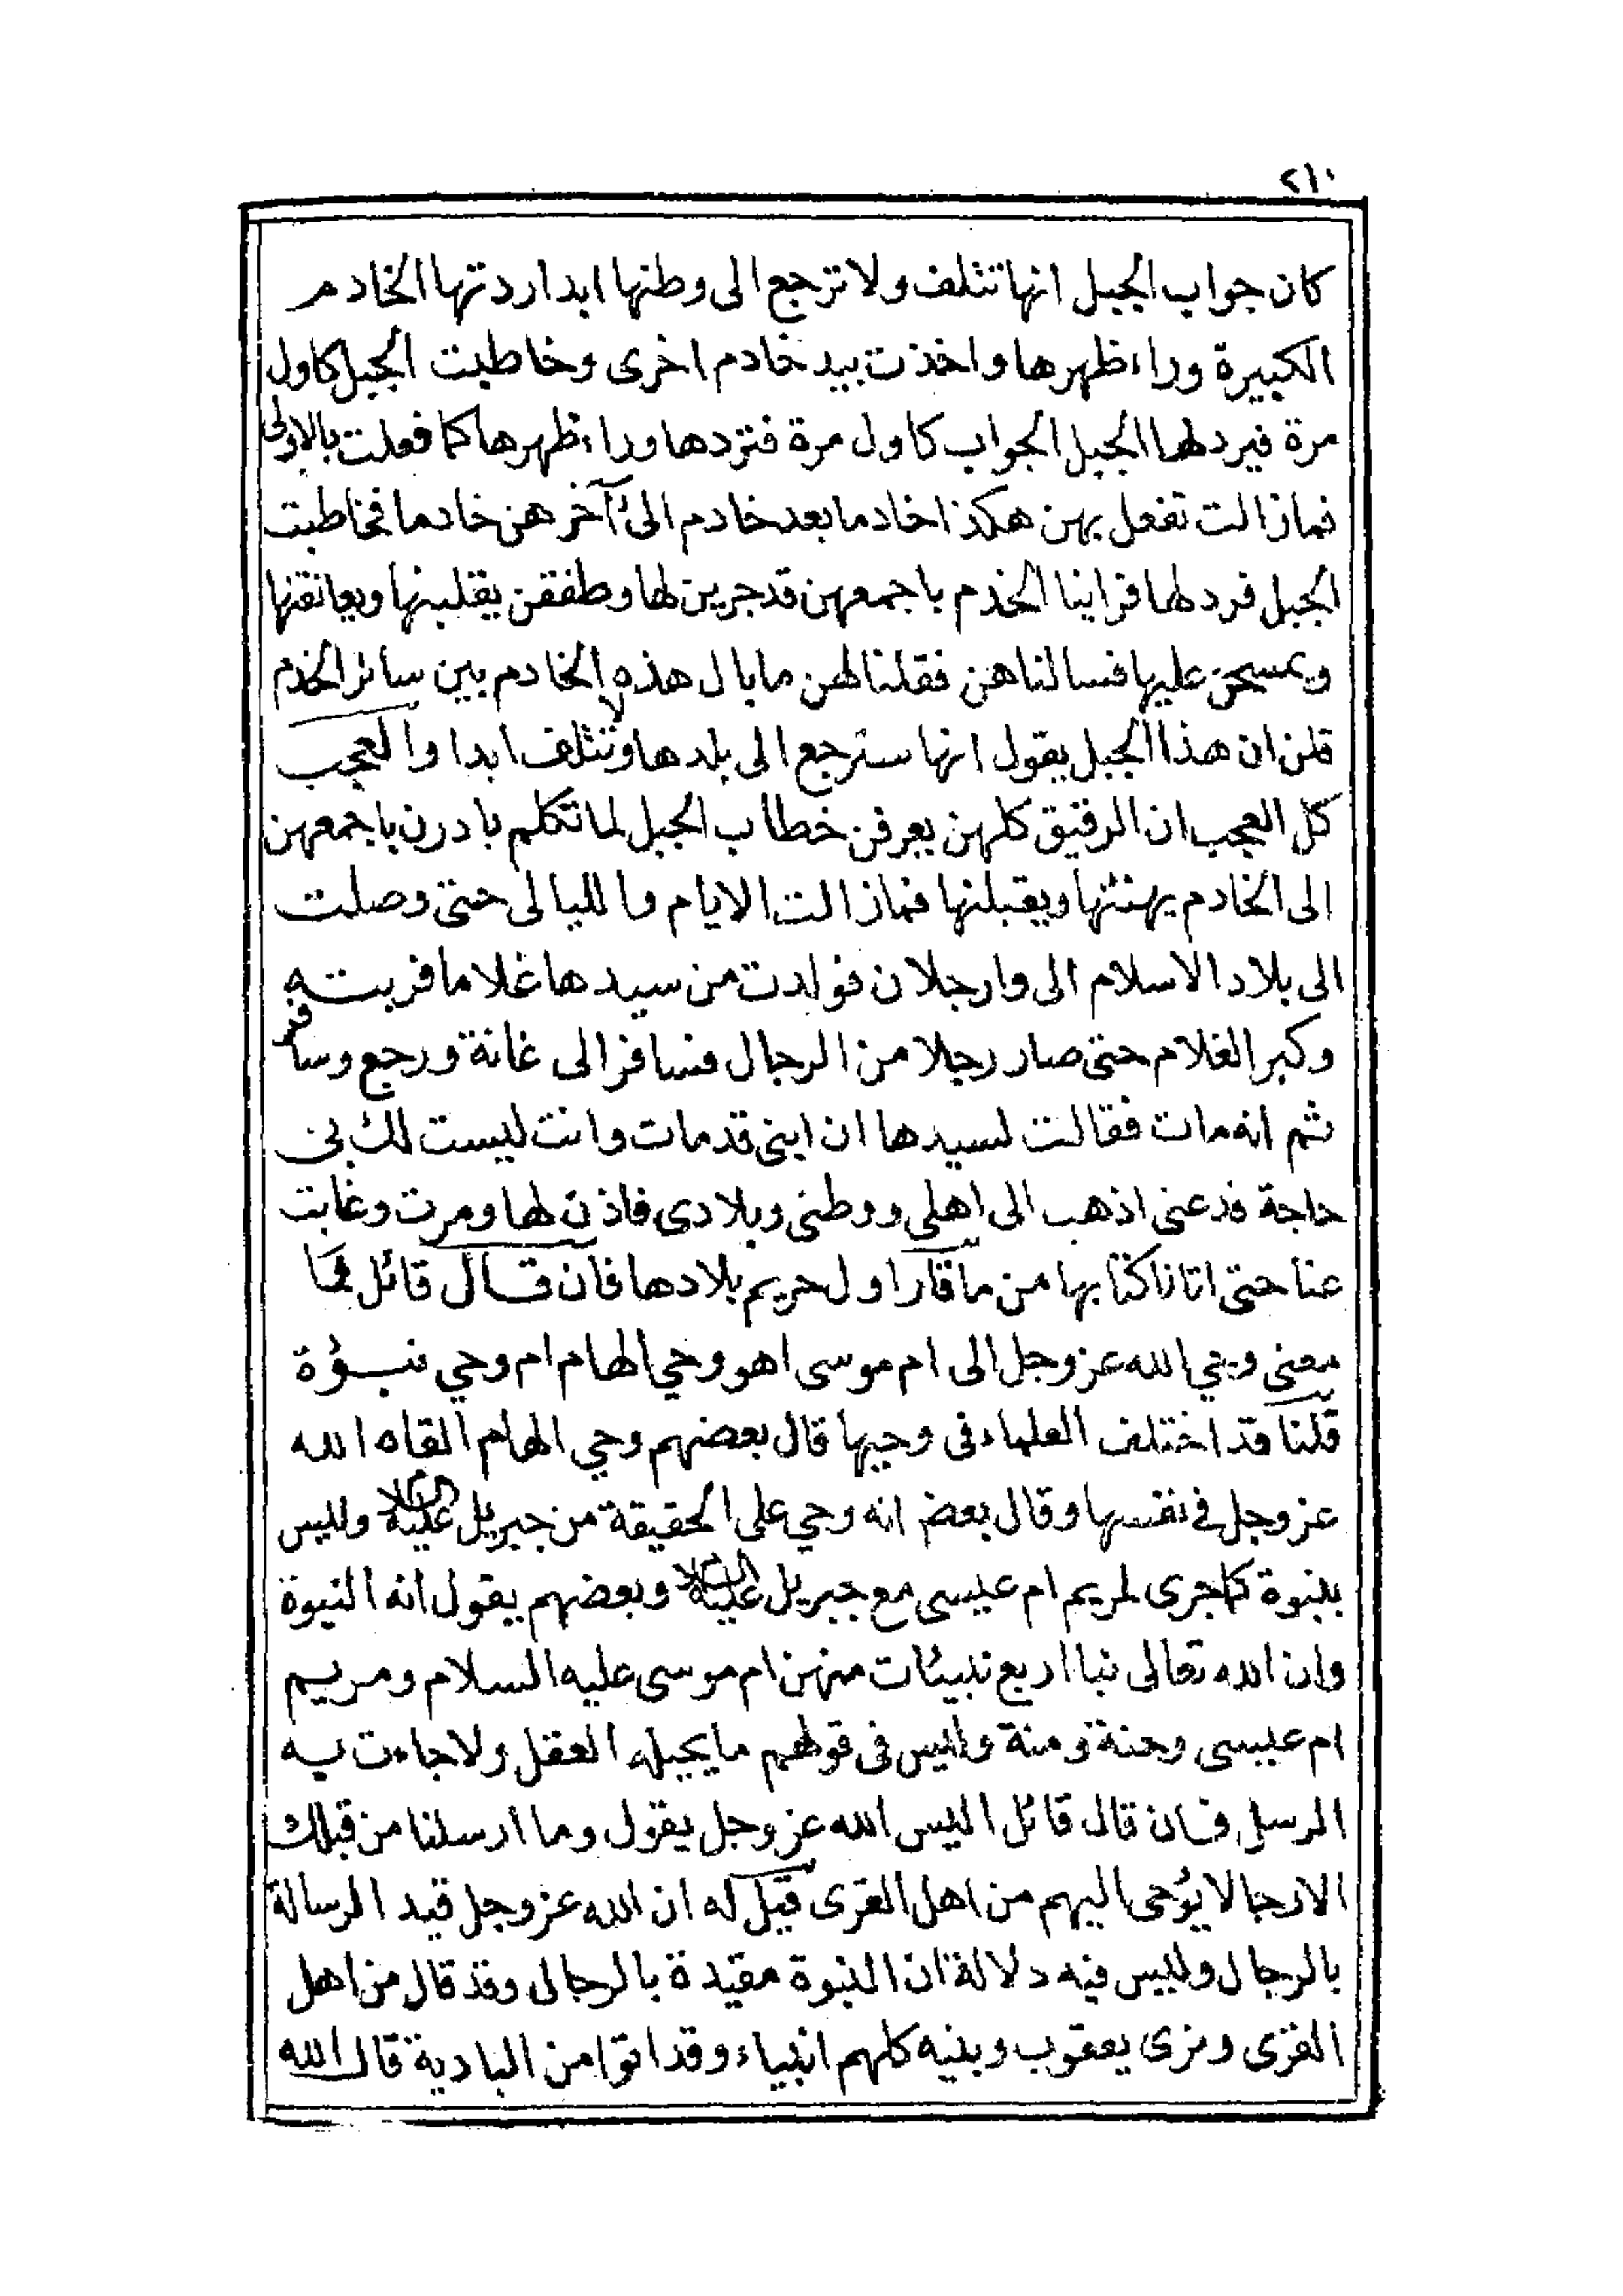 ٢١٠
كان جواب الجبل انها تتلف ولا ترجع الى وطنها ابدا ردتها الخادم
الكبيرة وراء ظهرها واخذت بيد خادم اخرى وخاطبت الجبل كاول
مرة فيرد لها الجبل الجواب كاول مرة فتردها وراء ظهرها كما فعلت بالاولى
فمازالت تفعل بهن هكذا خادما بعد خادم الى آخرهن خادما فخاطبت
الجبل فرد لها فراينا الخدم باجمعهن قد جرين لها وطفقن يقلبنها ويعانقنها
ويمسحن عليها فسالناهن فقلنا لهن ما بال هذه الخادم بين سائر الخدم
قلن ان هذا الجبل يقول انها سترجع الى بلدها ولا تتلف ابدا والعجب
كل العجب ان الرقيق كلهن يعرفن خطاب الجبل لما تكلم بادرن باجمعهن
الى الخادم يهنئنها ويقبلنها فمازالت الايام والليالى حتى وصلت
الى بلاد الاسلام الى وارجلان فولدت من سيدها غلاما فربته
وكبر الغلام حتى صار رجلا من الرجال فسافر الى غانة ورجع وسافر
ثم انه مات فقالت لسيدها ان ابنى قد مات وانت ليست لك بى
حاجة فدعنى اذهب الى اهلى ووطنى وبلادى فاذن لها ومرت وغابت
عنا حتى اتانا كتابها من ماقارا ول حريم بلادها فان قال قائل فما
معنى وحي الله عز وجل الى ام موسى اهو وحي الهام ام وحي نبؤة
قلنا قد اختلف العلماء فى وحيها قال بعضهم وحي الهام القاه الله
عز وجل في نفسها وقال بعض انه وحي على الحقيقة من جبريل عليه السلام وليس
بنبوة كما جرى لمريم ام عيسى مع جبريل عليه السلام وبعضهم يقول انه النبوة
وان الله تعالى نبا اربع نبيئات منهن ام موسى عليه السلام ومريم
ام عيسى وحنة ومنة وليس فى قولهم ما يحيله العقل ولا جاءت به
الرسل فان قال قائل اليس الله عز وجل يقول وما ارسلنا من قبلك
الا رجالا يؤحى اليهم من اهل القرى قيل له ان الله عز وجل قيد الرسالة
بالرجال وليس فيه دلالة ان النبوة مقيدة بالرجال وقد قال من اهل
القرى ونرى يعقوب وبنيه كلهم انبياء وقد اتوا من البادية قال الله